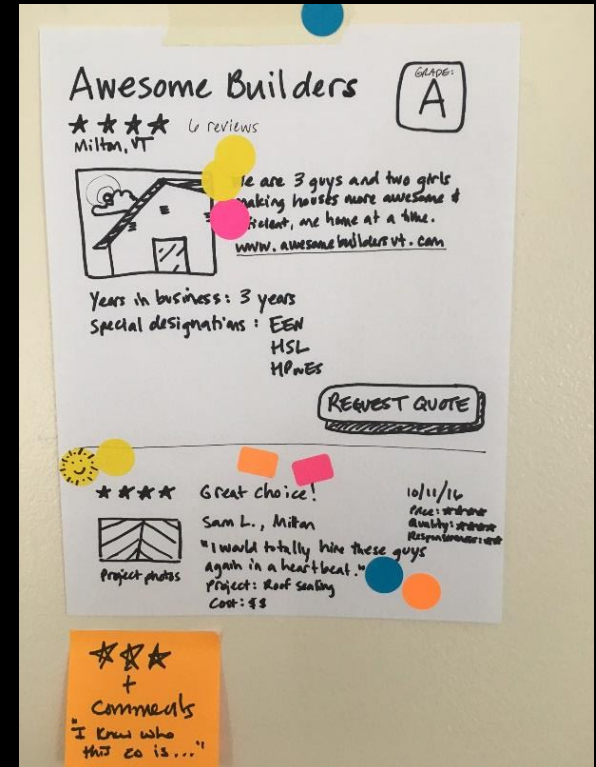 Awesome Builders
GRADE:
A
6 reviews
Milton, VT
e are 3 guys and two girls
making houses more awesome &
icient, one home at a time.
www.awesomebuildersvt.com
Years in business: 3 years
Special designations: EEN
HSL
HPwES
REQUEST QUOTE
Great choice!
10/11/16
Sam L., Milton
Price:
Quality:
Responsiveness:
"I would totally hire these guys
again in a heartbeat."
Project photos
Project: Roof sealing
Cost: $$
+
Comments
"I know who
this co is..."